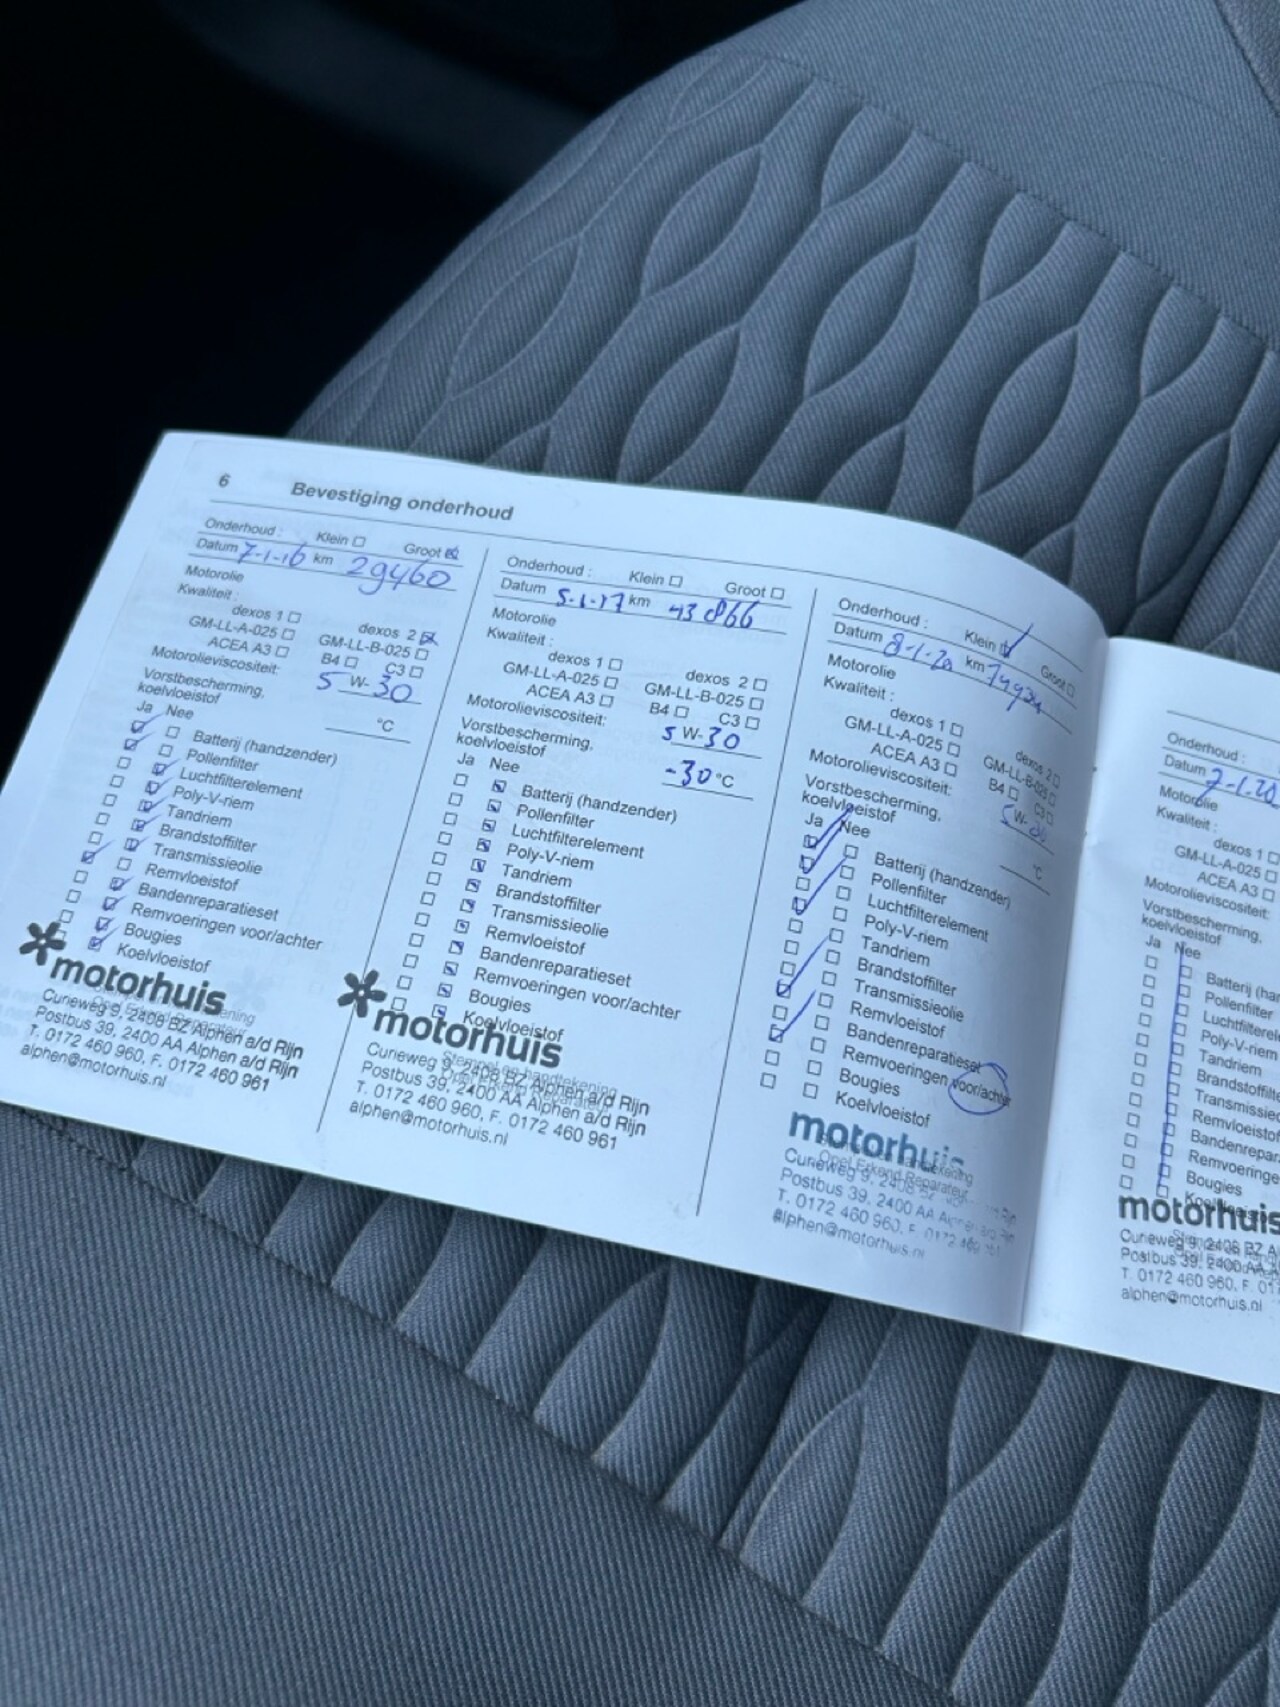 6 Bevestiging onderhoud
Onderhoud : Klein Groot
Datum 7-1-16 km 29460
Motorolie
Kwaliteit :
dexos 1 dexos 2
GM-LL-A-025 GM-LL-B-025
ACEA A3 B4 C3
Motorolieviscositeit: 5 W- 30
Vorstbescherming,
koelvloeistof °C
Ja Nee
Batterij (handzender)
Pollenfilter
Luchtfilterelement
Poly-V-riem
Tandriem
Brandstoffilter
Transmissieolie
Remvloeistof
Bandenreparatieset
Remvoeringen voor/achter
Bougies
Koelvloeistof
motorhuis
Curieweg 9, 2408 BZ Alphen a/d Rijn
Postbus 39, 2400 AA Alphen a/d Rijn
T. 0172 460 960, F. 0172 460 961
alphen@motorhuis.nl
Onderhoud : Klein Groot
Datum 5-1-17 km 43866
Motorolie
Kwaliteit :
dexos 1 dexos 2
GM-LL-A-025 GM-LL-B-025
ACEA A3 B4 C3
Motorolieviscositeit: 5 W- 30
Vorstbescherming,
koelvloeistof -30 °C
Ja Nee
Batterij (handzender)
Pollenfilter
Luchtfilterelement
Poly-V-riem
Tandriem
Brandstoffilter
Transmissieolie
Remvloeistof
Bandenreparatieset
Remvoeringen voor/achter
Bougies
Koelvloeistof
Stempel en handtekening
motorhuis
Curieweg 9, 2408 BZ Alphen a/d Rijn
Postbus 39, 2400 AA Alphen a/d Rijn
T. 0172 460 960, F. 0172 460 961
alphen@motorhuis.nl
Onderhoud : Klein Groot
Datum 8-1-20 km
Motorolie
Kwaliteit :
dexos 1 dexos 2
GM-LL-A-025 GM-LL-B-025
ACEA A3 B4 C3
Motorolieviscositeit: 5 W-
Vorstbescherming,
koelvloeistof °C
Ja Nee
Batterij (handzender)
Pollenfilter
Luchtfilterelement
Poly-V-riem
Tandriem
Brandstoffilter
Transmissieolie
Remvloeistof
Bandenreparatieset
Remvoeringen voor/achter
Bougies
Koelvloeistof
motorhuis
Opel Erkend Reparateur
Curieweg 9, 2408 BZ
Postbus 39, 2400 AA Alphen
T. 0172 460 960, F. 0172 460 961
alphen@motorhuis.nl
Onderhoud :
Datum
Motorolie
Kwaliteit :
dexos 1
GM-LL-A-025
ACEA A3
Motorolieviscositeit:
Vorstbescherming,
koelvloeistof
Ja Nee
Batterij (ha
Pollenfilter
Luchtfilterel
Poly-V-riem
Tandriem
Brandstoffil
Transmissie
Remvloeistof
Bandenrepar
Remvoeringe
Bougies
Koelvloeistof
motorhuis
Curieweg 9, 2408 BZ A
Postbus 39, 2400 AA
T. 0172 460 960, F. 01
alphen@motorhuis.nl